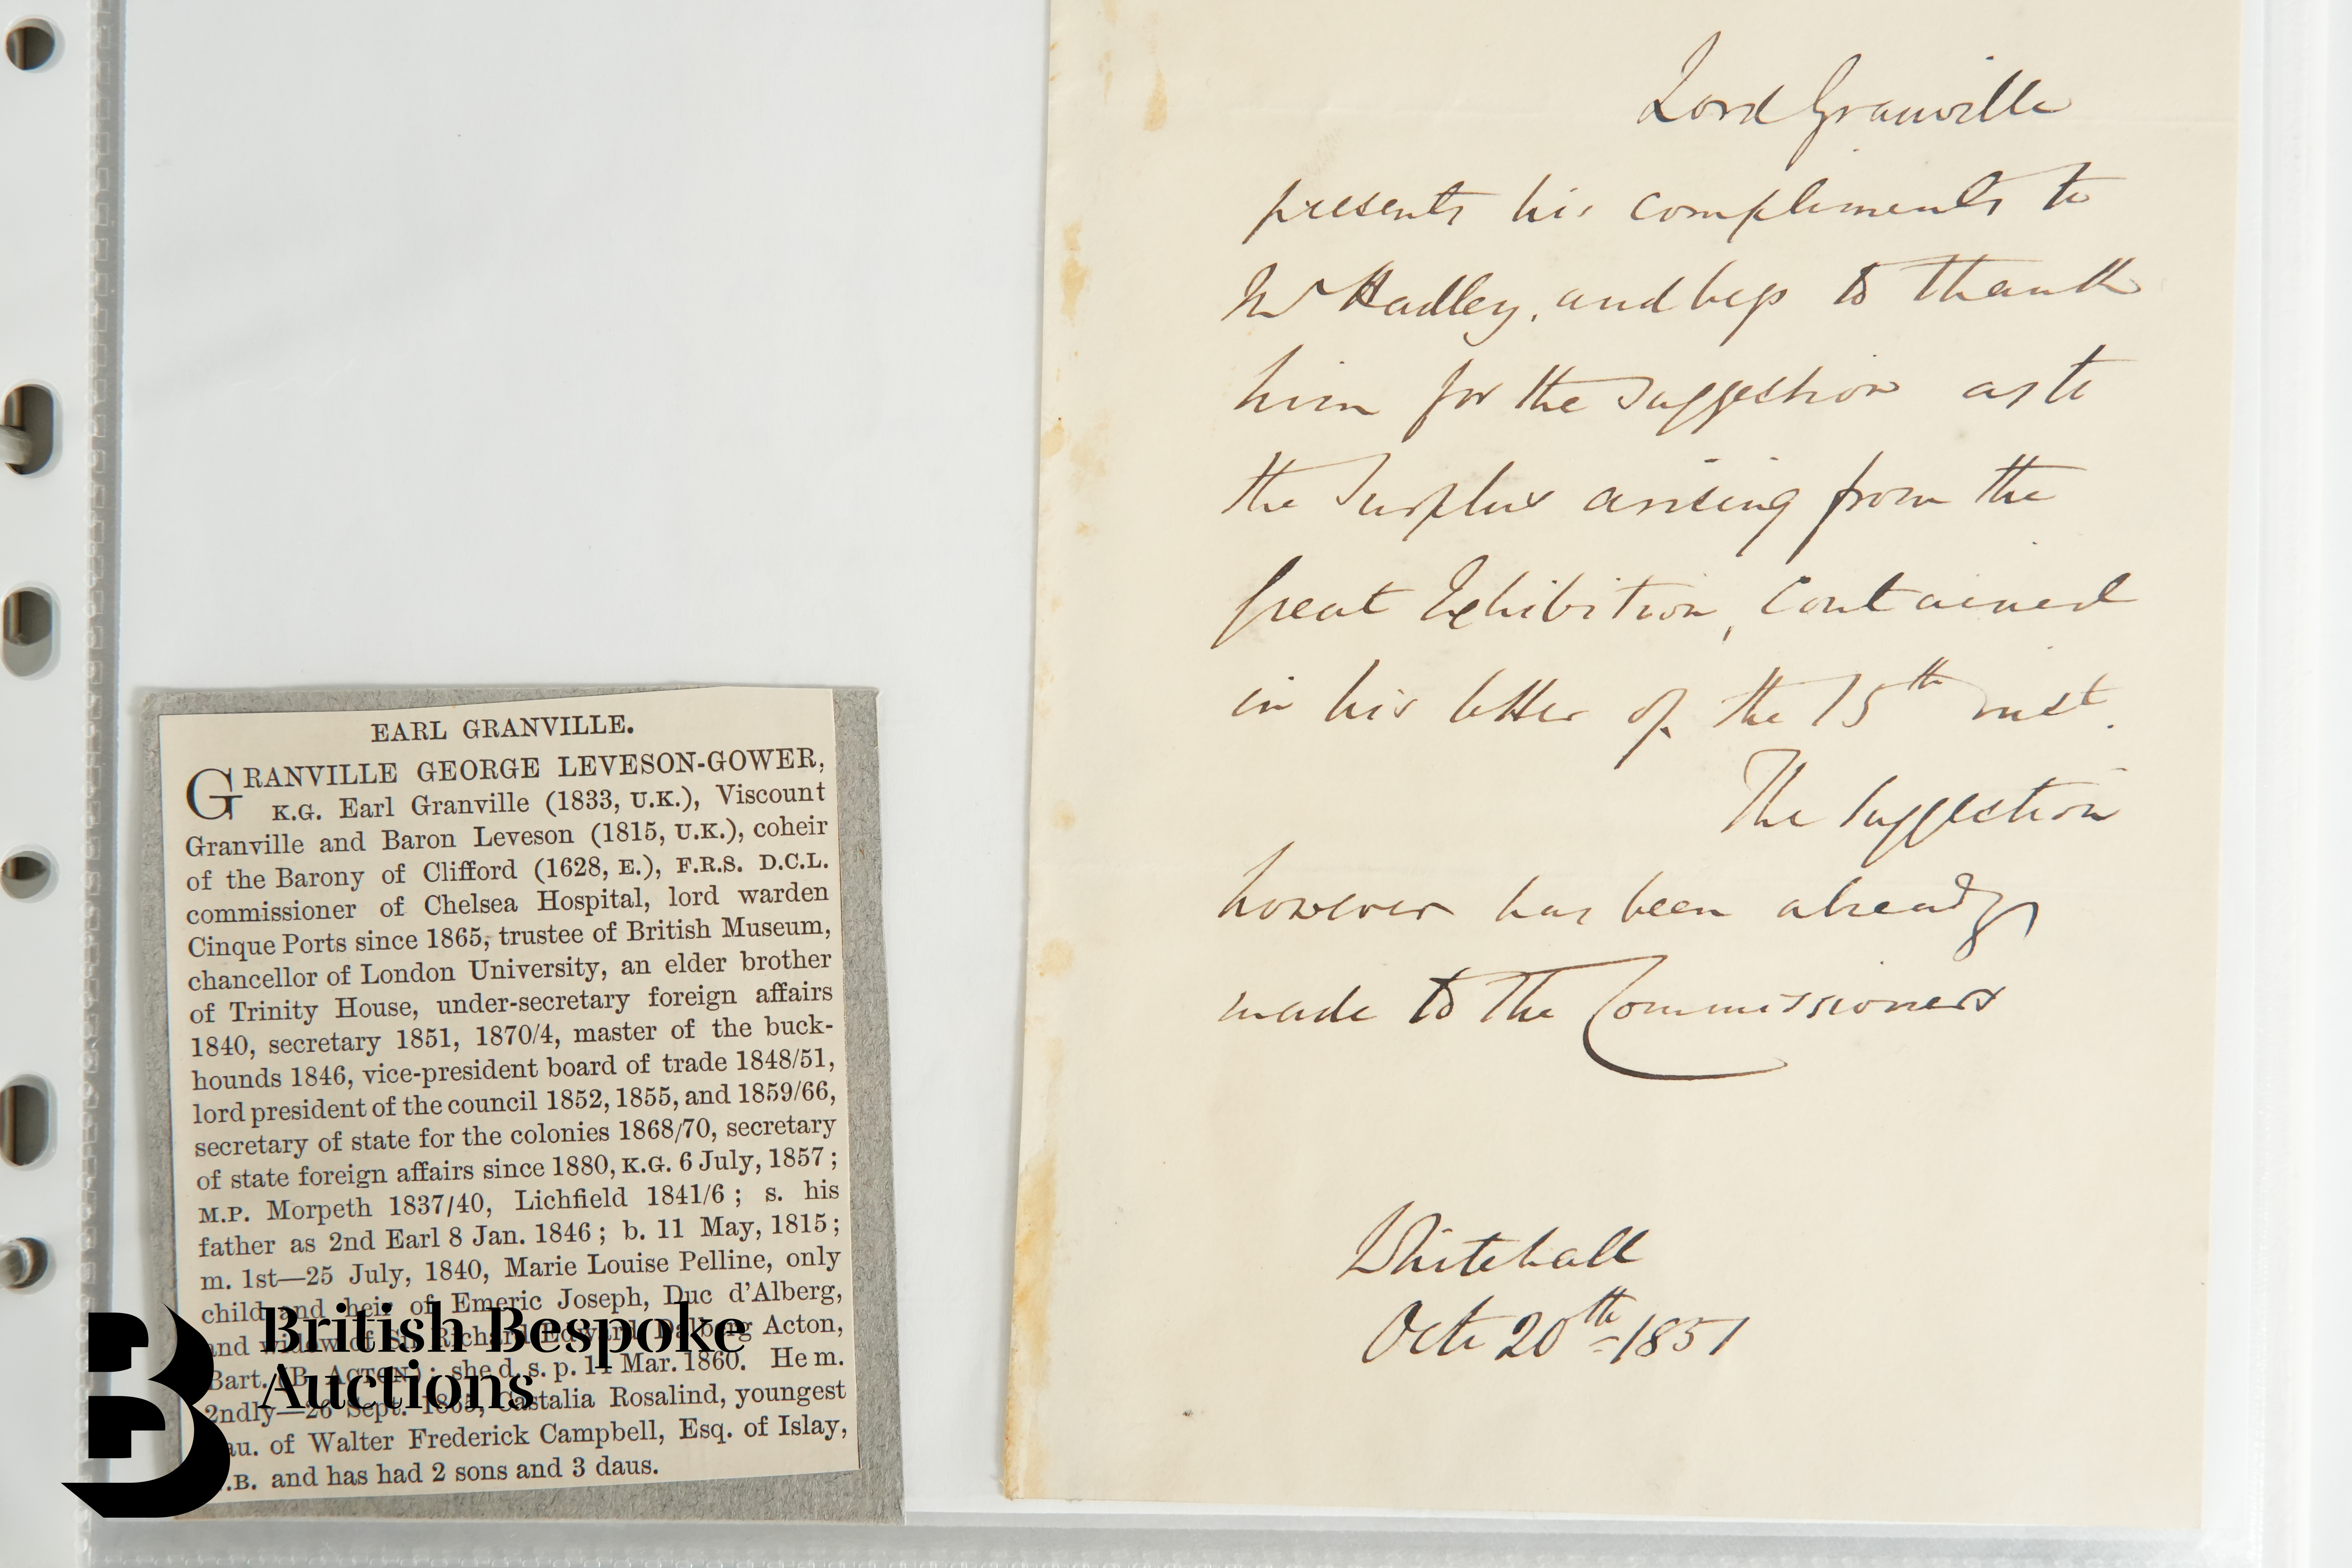 EARL GRANVILLE.
GRANVILLE GEORGE LEVESON-GOWER,
K.G. Earl Granville (1833, U.K.), Viscount
Granville and Baron Leveson (1815, U.K.), coheir
of the Barony of Clifford (1628, E.), F.R.S. D.C.L.
commissioner of Chelsea Hospital, lord warden
Cinque Ports since 1865, trustee of British Museum,
chancellor of London University, an elder brother
of Trinity House, under-secretary foreign affairs
1840, secretary 1851, 1870/4, master of the buck-
hounds 1846, vice-president board of trade 1848/51,
lord president of the council 1852, 1855, and 1859/66,
secretary of state for the colonies 1868/70, secretary
of state foreign affairs since 1880, K.G. 6 July, 1857;
M.P. Morpeth 1837/40, Lichfield 1841/6; s. his
father as 2nd Earl 8 Jan. 1846; b. 11 May, 1815;
m. 1st—25 July, 1840, Marie Louise Pelline, only
child and heir of Emeric Joseph, Duc d'Alberg,
and widow of Sir Richard Edward Dalberg Acton,
Bart. (B. ACTON); she d. s. p. 14 Mar. 1860. He m.
2ndly—26 Sept. 1865, Castalia Rosalind, youngest
dau. of Walter Frederick Campbell, Esq. of Islay,
.B. and has had 2 sons and 3 daus.
British Bespoke
Auctions
Lord Granville
presents his compliments to
Mr Hadley, and begs to thank
him for the suggestion as to
the Surplus arising from the
Great Exhibition, contained
in his letter of the 15th inst.
The Suggestion
however has been already
made to the Commissioners
Whitehall
Octr 20th 1851